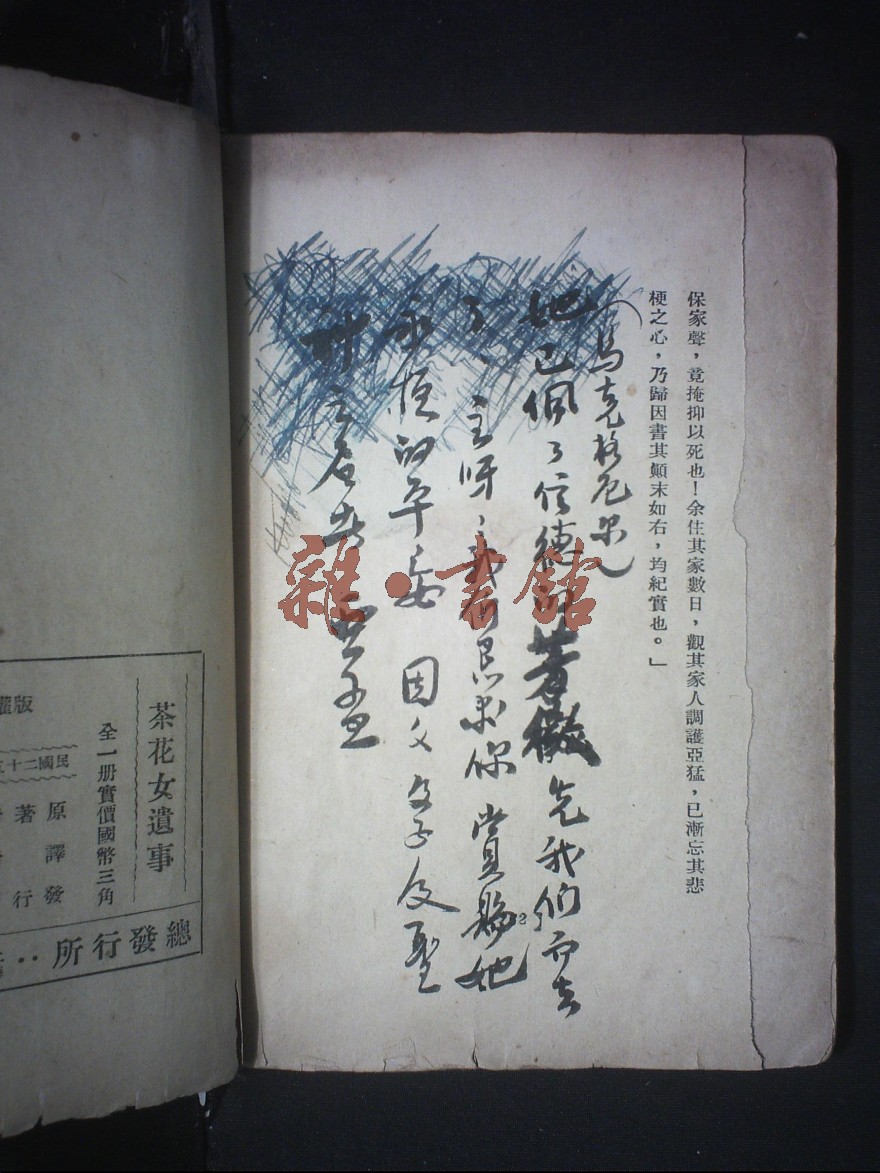 保家聲，竟掩抑以死也！余住其家數日，觀其家人調護亞猛，已漸忘其悲
梗之心，乃歸因書其顛末如右，均紀實也。」
馬克格尼尔
她已佩了信德 薔薇先我们而去
了、主呀、我 恳求你 賞賜她
永恒的平安 因父 及子及聖
神之名
茶花女遺事
全一册實價國幣三角
民國二十五
版權
原著
譯
發行
總發行所：
雜·書館